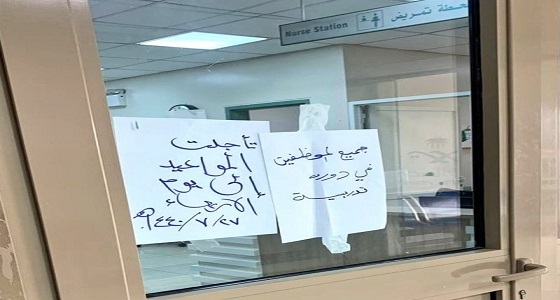 محطة تمريض
Nurse Station
جميع الموظفين
في دوره
تدريبية
تأجلت
المواعيد
إلى يوم
الأربعاء
١٤٤٠/٧/٢٧هـ